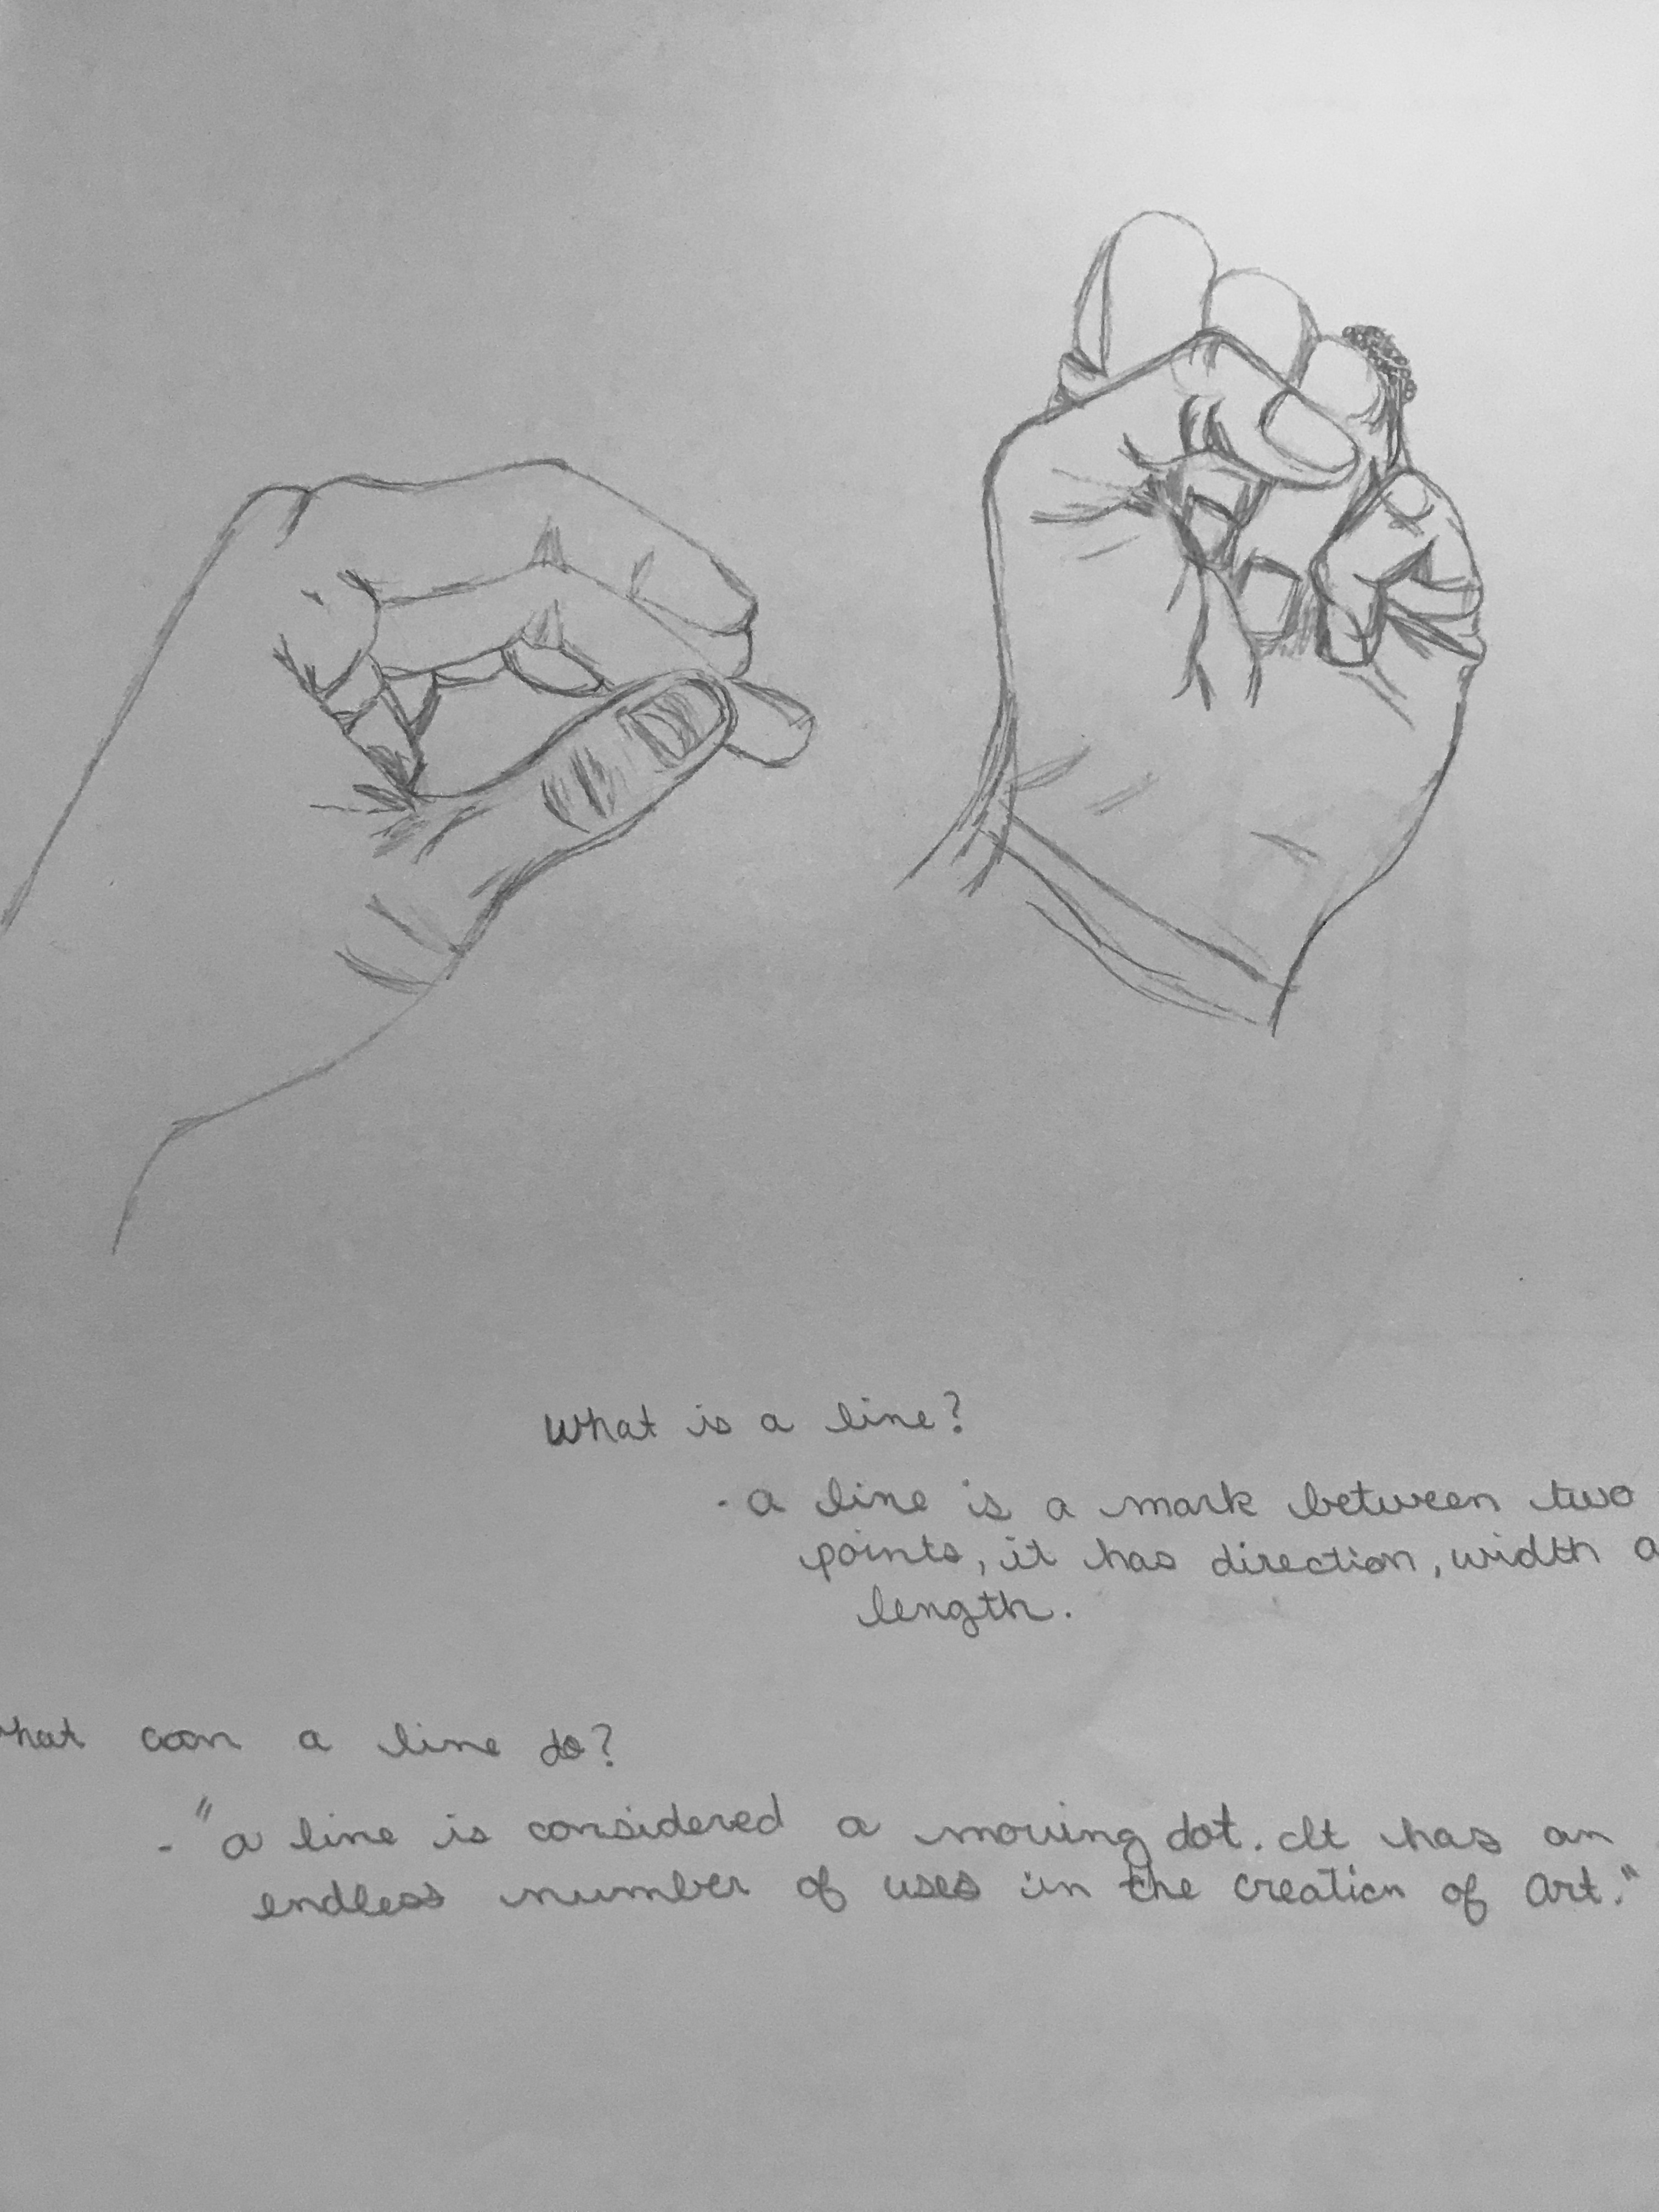 What is a line?
- a line is a mark between two
points, it has direction, width a
length.
hat can a line do?
- "a line is considered a moving dot. It has an
endless number of uses in the creation of art."